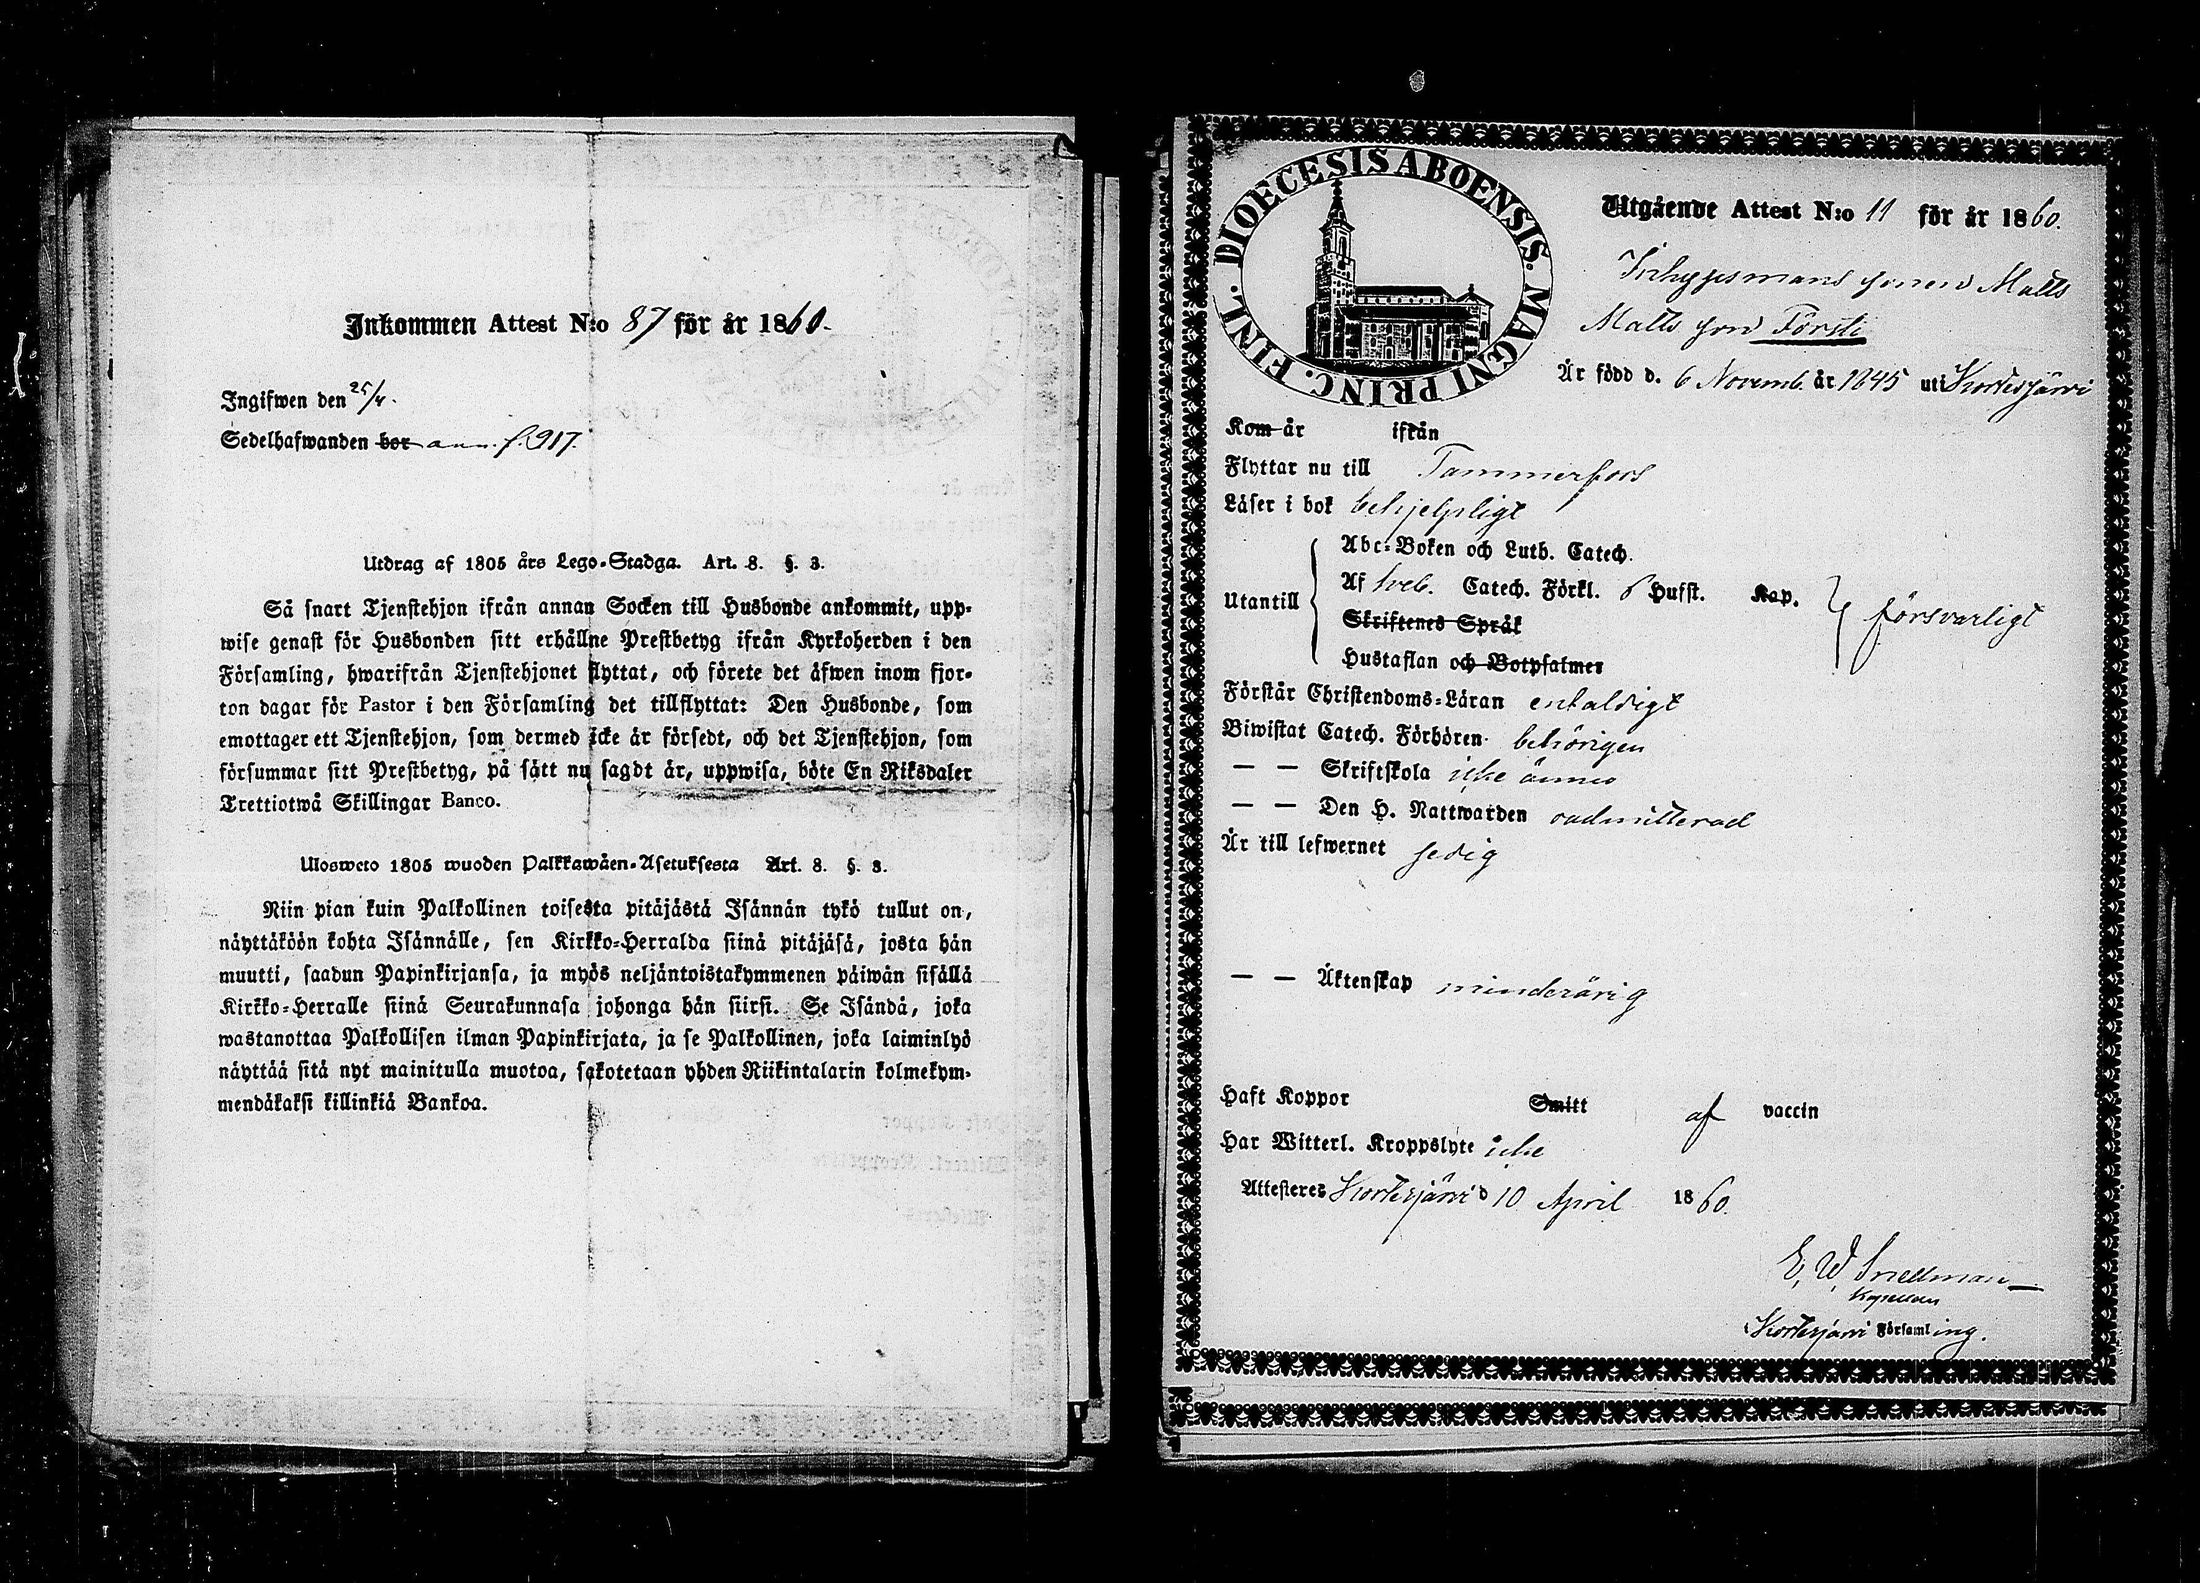 Inkommen Attest N:o 87 för år 1860.
Ingifwen den 25/4.
Sedelhafwanden bor ann. f. 917.
Utdrag af 1805 års Lego-Stadga. Art. 8. §. 3.
Så snart Tjenstehjon ifrån annan Socken till Husbonde ankommit, upp-
wise genast för Husbonden sitt erhållne Prestbetyg ifrån Kyrkoherden i den
Församling, hwarifrån Tjenstehjonet flyttat, och förete det äfwen inom fjor-
ton dagar för Pastor i den Församling det tillflyttat: Den Husbonde, som
emottager ett Tjenstehjon, som dermed icke är försedt, och det Tjenstehjon, som
försummar sitt Prestbetyg, på sätt nu sagdt är, uppwisa, böte En Riksdaler
Trettiotwå Skillingar Banco.
Ulosweto 1805 wuoden Palkkawäen-Asetuksesta Art. 8. §. 3.
Niin pian kuin Palkollinen toisesta pitäjästä Isännän tykö tullut on,
näyttäköön kohta Isännälle, sen Kirkko-Herralda siinä pitäjäsä, josta hän
muutti, saadun Papinkirjansa, ja myös neljäntoistakymmenen päiwän sisällä
Kirkko-Herralle siinä Seurakunnasa johonga hän siirsi. Se Isändä, joka
wastanottaa Palkollisen ilman Papinkirjata, ja se Palkollinen, joka laiminlyö
näyttää sitä nyt mainitulla muotoa, sakotetaan yhden Riikintalarin kolmekym-
mendäkaksi killinkiä Bankoa.
DIOECESIS ABOENSIS. MAGNI PRINC. FINL.
Utgående Attest N:o 11 för år 1860.
Inhyggesmans sonen Matts
Matts son Försti
Är född d. 6 Novemb. år 1845 uti Kortesjärvi
Kom år ifrån
Flyttar nu till Tammerfors
Läser i bok behjelpligt
Abc-Boken och Luth. Catech.
Utantill Af Sveb. Catech. Förkl. 6 Hufst. Kap. försvarligt
Skriftenes Språk
Hustaflan och Botpsalmer
Förstår Christendoms-Läran enfaldigt
Biwistat Catech. Förhören behörigen
— — Skriftskola icke ännu
— — Den H. Nattwarden oadmitterad
Är till lefwernet sedig
— — Äktenskap minderårig
Haft Koppor Smitt af vaccin
Har Witterl. Kroppslyte icke
Attesteres Kortesjärvi d 10 April 1860.
E, W Snellman
Kapellan
Kortesjärvi Församling.